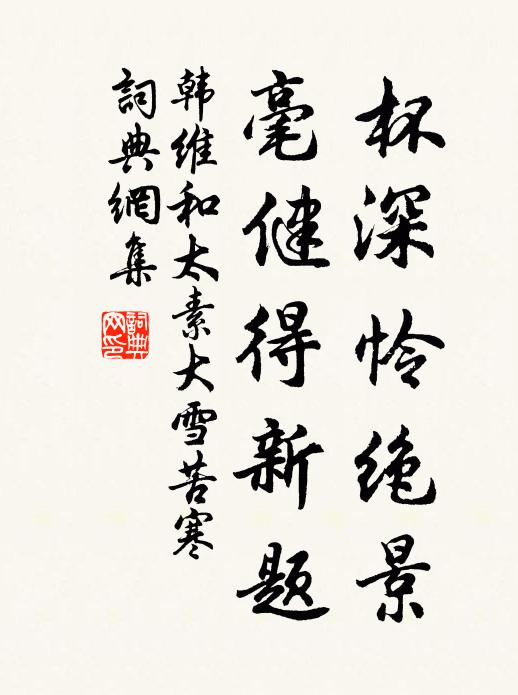 杯深怜绝景
毫健得新题
韩维和太素大雪苦寒
詞典網集
詞典网印